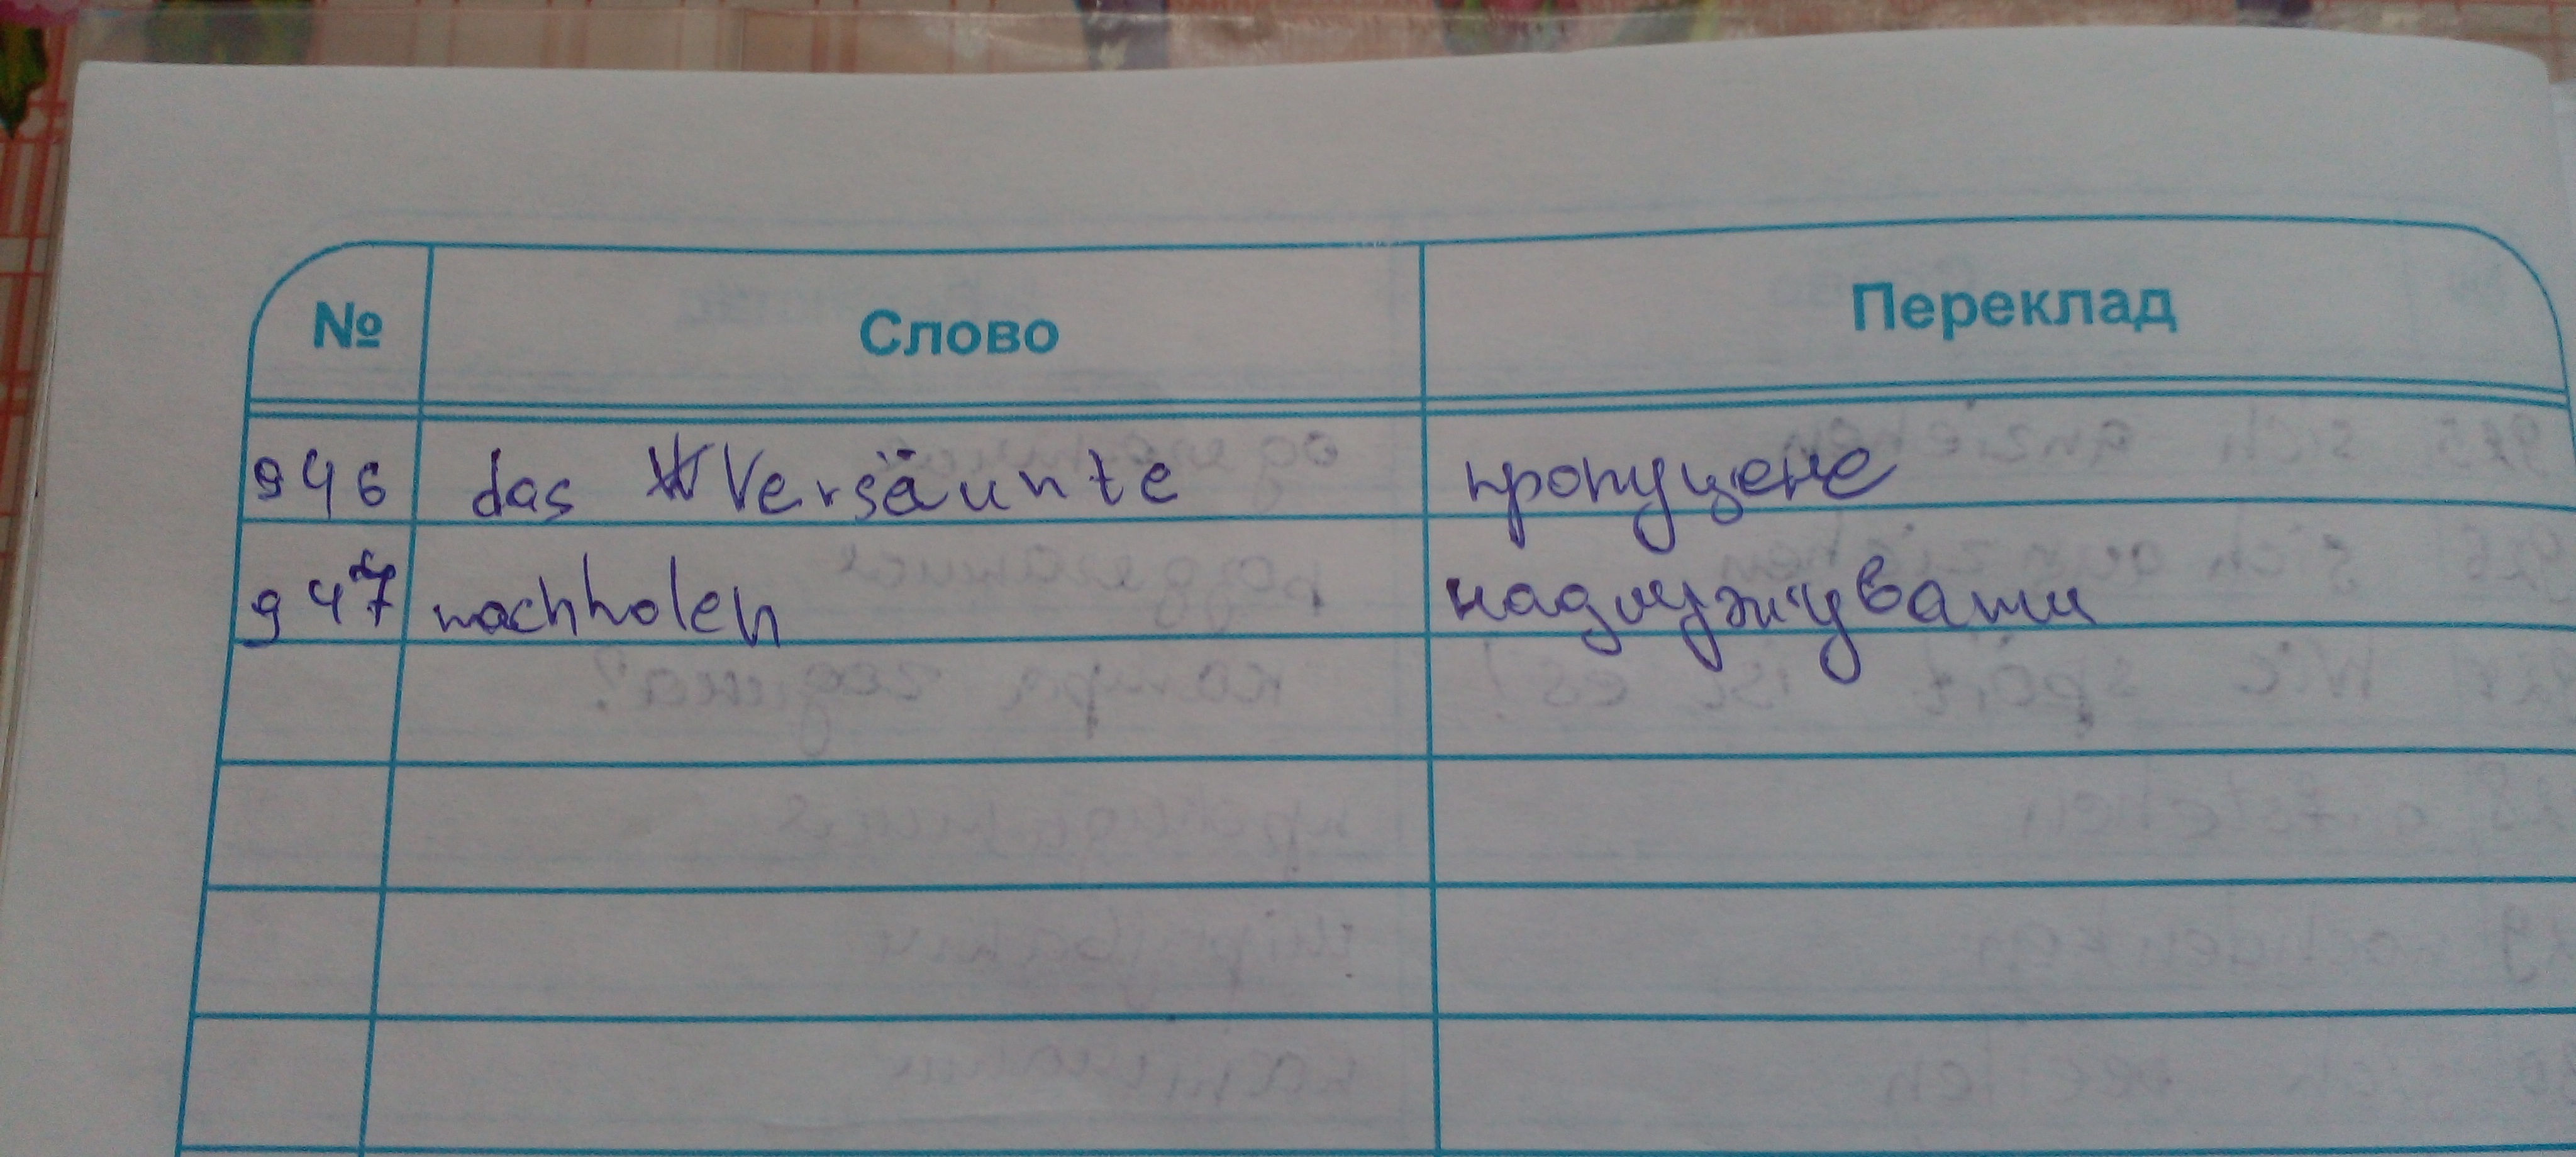 № Слово Переклад
946 das Versäunte пропущене
947 nachholen надолужувати